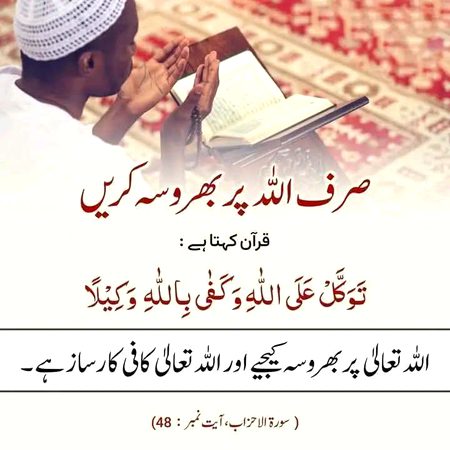 صرف اللہ پر بھروسہ کریں
قرآن کہتا ہے :
تَوَكَّلْ عَلَى اللّٰهِ وَكَفٰى بِاللّٰهِ وَكِيْلًا
اللہ تعالیٰ پر بھروسہ کیجیے اور اللہ تعالیٰ کافی کارساز ہے۔
( سورۃ الاحزاب، آیت نمبر : 48)